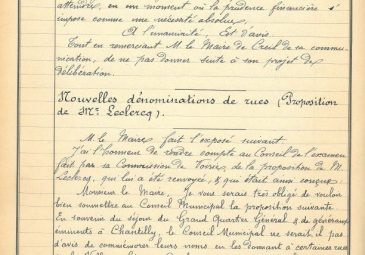 attendre, en un moment où la prudence financière s'
impose comme une nécessité absolue,
A l'unanimité, Est d'avis
Tout en remerciant M. le Maire de Creil de sa commu-
nication, de ne pas donner suite à son projet de
délibération.
Nouvelles dénominations de rues (Proposition
de Mr. Leclercq)
M. le Maire fait l'exposé suivant.
J'ai l'honneur de rendre compte au Conseil de l'examen
fait par sa Commission de Voirie, de la proposition de M.
Leclercq, qui lui a été renvoyée, & qui était ainsi conçue:
Monsieur le Maire, Je vous serais très obligé de vouloir
bien soumettre au Conseil Municipal la proposition suivante
En souvenir du séjour du Grand Quartier Général & de généraux
éminents à Chantilly, le Conseil Municipal ne serait-il pas
d'avis de commémorer leurs noms, en les donnant à certaines rues